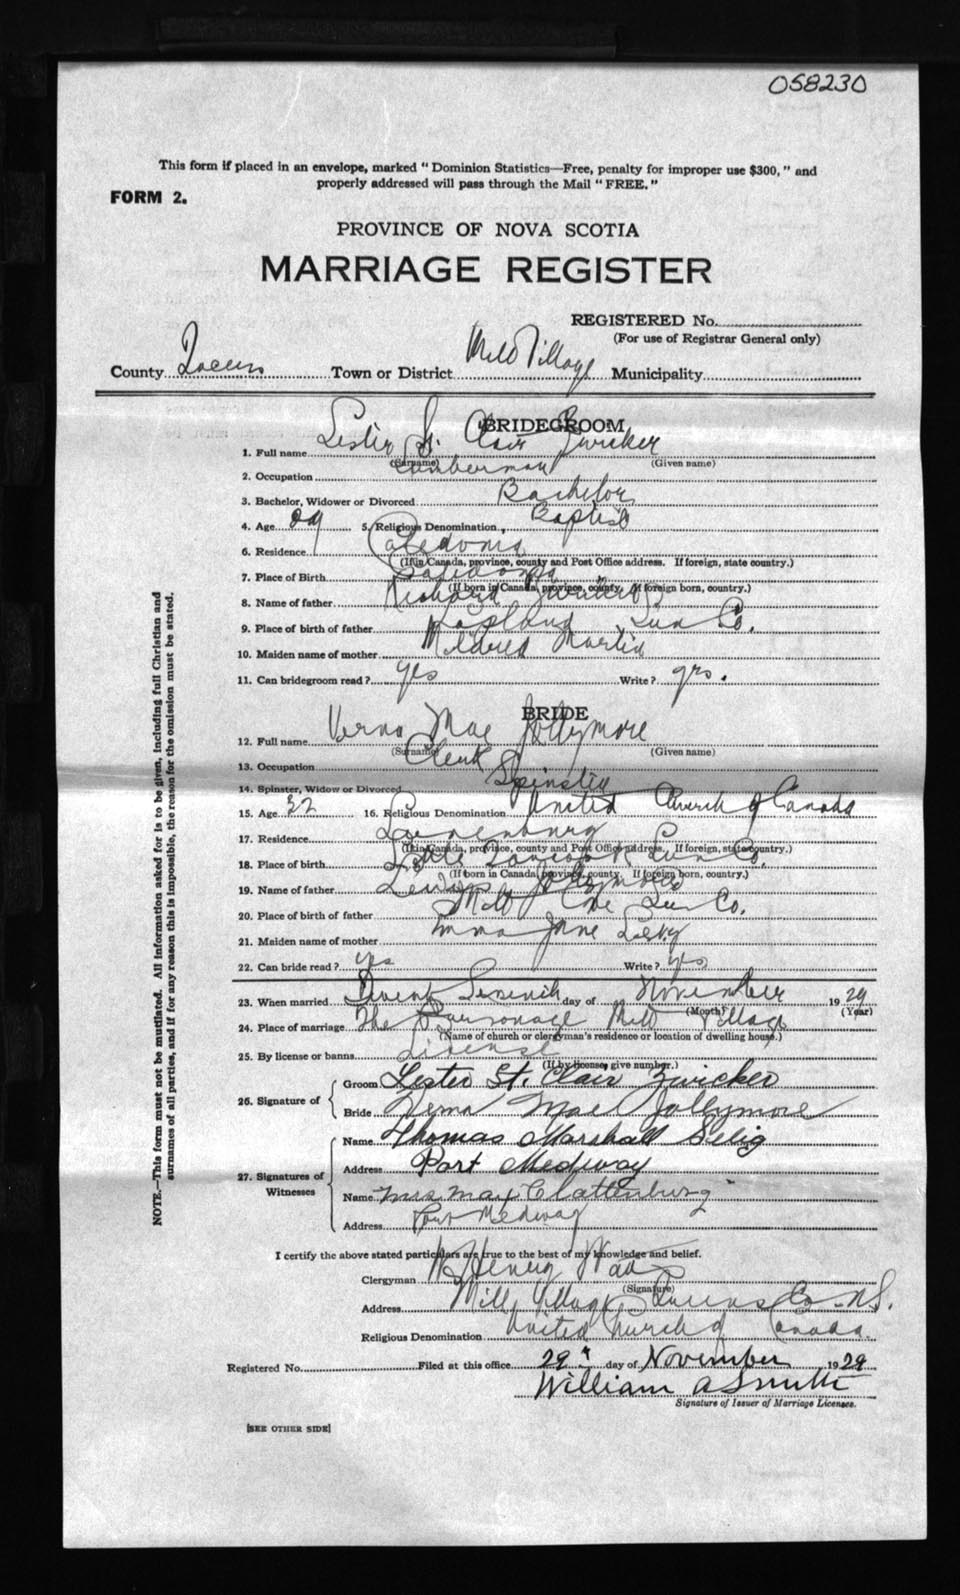 058230
This form if placed in an envelope, marked " Dominion Statistics—Free, penalty for improper use $300, " and
properly addressed will pass through the Mail " FREE. "
FORM 2.
PROVINCE OF NOVA SCOTIA
MARRIAGE REGISTER
REGISTERED No.
(For use of Registrar General only)
County Queens Town or District Mill Village Municipality
BRIDEGROOM
1. Full name St. Clair Zwicker
(Surname) (Given name)
2. Occupation Lumberman
3. Bachelor, Widower or Divorced Bachelor
4. Age 5. Religious Denomination Baptist
6. Residence Caledonia
(If in Canada, province, county and Post Office address. If foreign, state country.)
7. Place of Birth Caledonia
(If born in Canada, province, county. If foreign born, country.)
8. Name of father Richard Zwicker
9. Place of birth of father Lapland Lun Co.
10. Maiden name of mother Mildred Martin
11. Can bridegroom read ? yes Write ? yes.
BRIDE
12. Full name Verna Mae Jollymore
(Surname) (Given name)
13. Occupation Clerk
14. Spinster, Widow or Divorced Spinster
15. Age 16. Religious Denomination United Church of Canada
17. Residence Lunenburg
(If in Canada, province, county and Post Office address. If foreign, state country.)
18. Place of birth Little Tancook Lun Co.
(If born in Canada, province, county. If foreign born, country.)
19. Name of father Jollymore
20. Place of birth of father Mill Cove Lun Co.
21. Maiden name of mother Emma Jane
22. Can bride read ? yes Write ? yes
23. When married day of November 1929
(Month) (Year)
24. Place of marriage The Parsonage Mill Village
(Name of church or clergyman's residence or location of dwelling house.)
25. By license or banns License
(If by license, give number.)
26. Signature of
Groom Lester St. Clair Zwicker
Bride Verna Mae Jollymore
27. Signatures of Witnesses
Name Thomas Marshall Selig
Address Port Medway
Name Mrs May Clattenburg
Address Port Medway
I certify the above stated particulars are true to the best of my knowledge and belief.
Clergyman
(Signature)
Address Mill Village Queens Co. N.S.
Religious Denomination United Church of Canada.
Registered No. Filed at this office 29 day of November 1929
William A Smith
Signature of Issuer of Marriage Licenses.
[SEE OTHER SIDE]
NOTE.—This form must not be mutilated. All information asked for is to be given, including full Christian and
surnames of all parties, and if for any reason this is impossible, the reason for the omission must be stated.